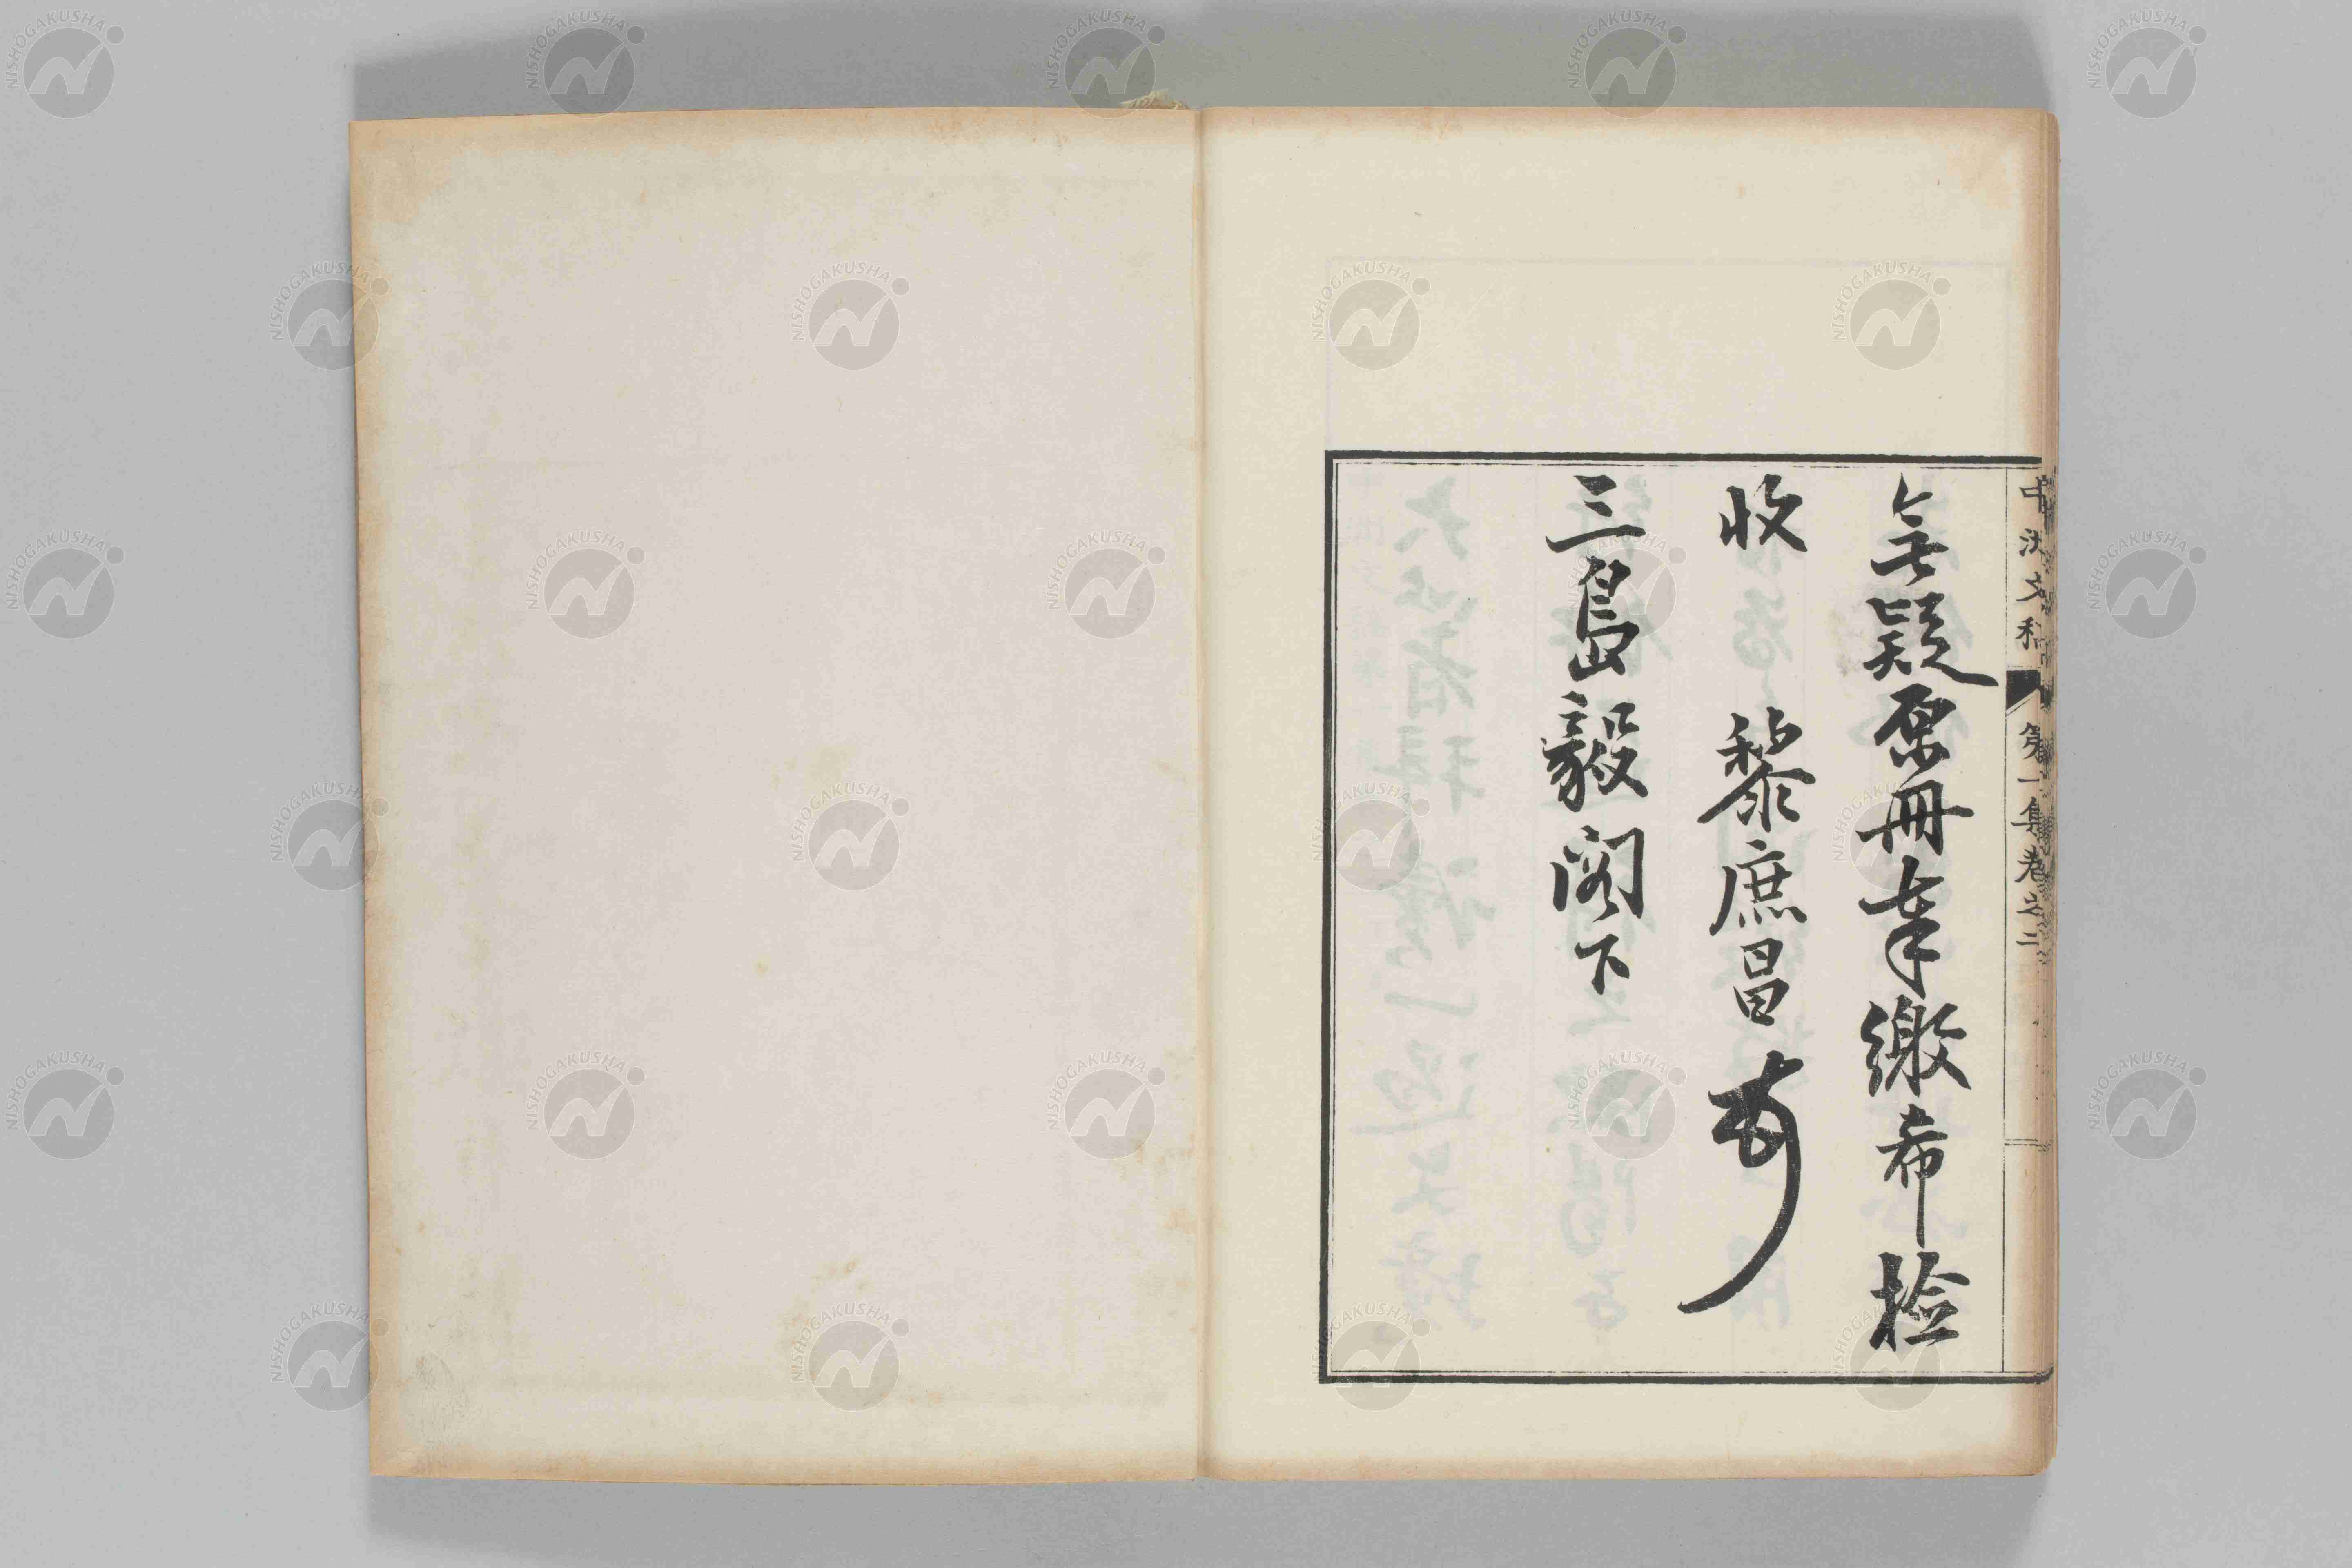 無疑原冊奉繳希撿
收 黎庶昌
三島毅閣下
中洲文稿 第一集卷之二
NISHOGAKUSHA